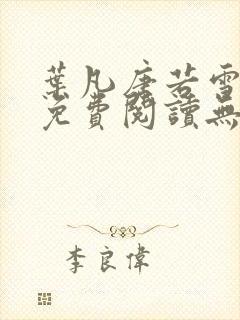 葉凡唐若雪
免費閱讀無
李良偉